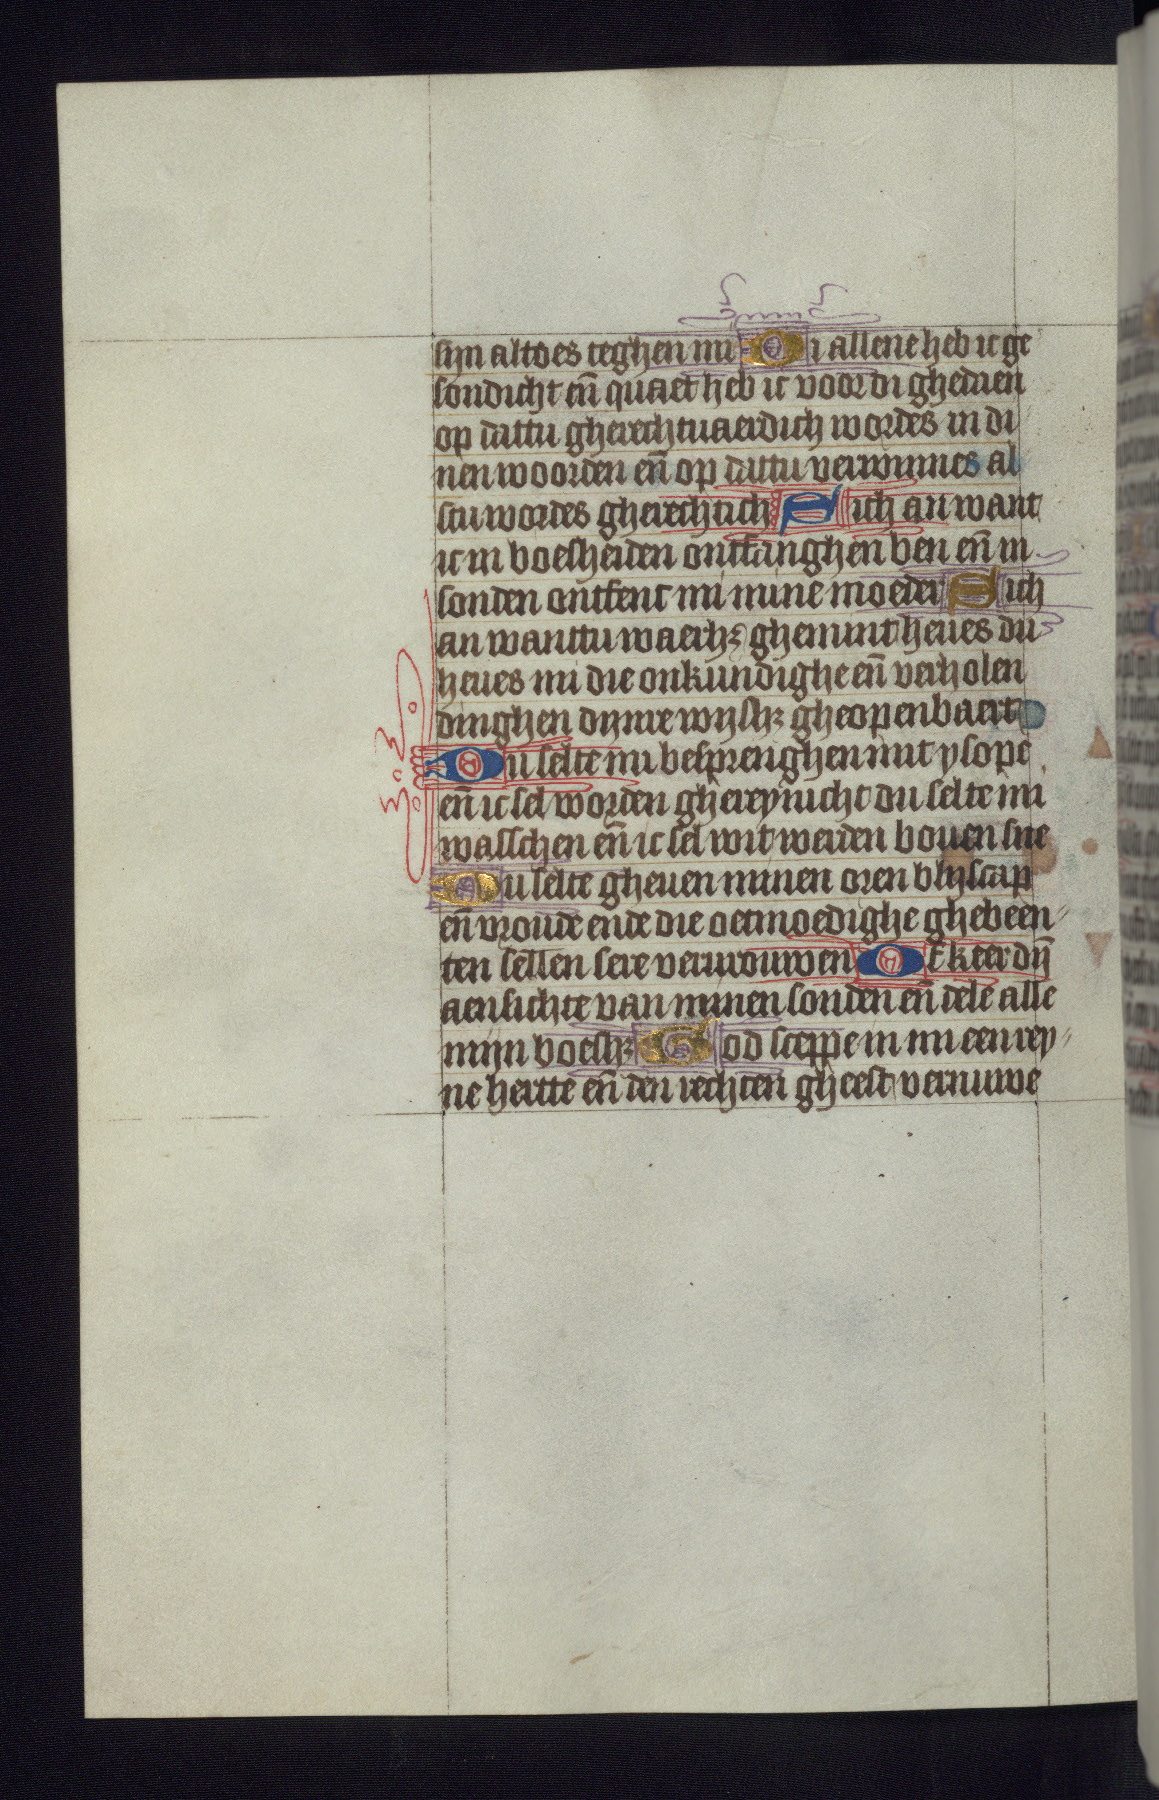 sijn altoes teghen mi Di allene heb ic ge
sondicht en̄ quaet heb ic voor di ghedaen
op dattu gherechtuaerdich wordes in di
nen woorden en̄ op dattu verwinnes al
stu wordes gherechtich Sich an want
ic in boesheiden ontfanghen ben en̄ in
sonden ontfenc mi mine moeder Sich
an wanttu waerhꝫ ghemint heues du
heues mi die onkundighe en̄ verholen
dinghen dijnre wijshꝫ gheopenbaert
Du selte mi besprenghen mit ysope
en̄ ic sel worden ghereynicht du selte mi
wasschen en̄ ic sel wit werden bouen sne
Du selte gheuen minen oren blijscap
en̄ vroude ende die oetmoedighe ghebeen
ten sellen sere vervrouwen Of keer dijn̄
aensichte van minen sonden en̄ dele alle
mijn boeshꝫ God sceppe in mi een rey
ne hertte en̄ den rechten gheest vernuwe